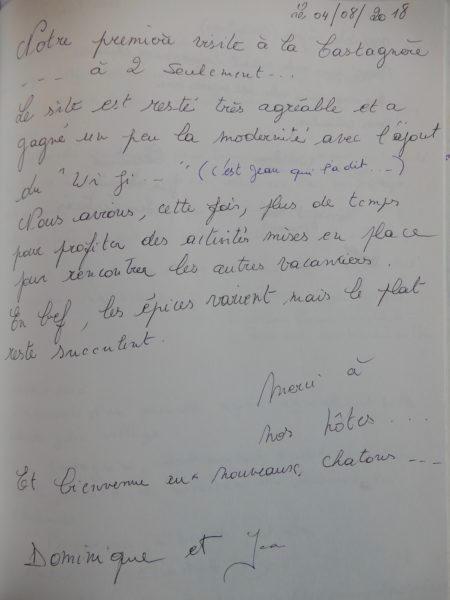 le 04/08/2018
Notre première visite à la Castagnère
--- à 2 seulement...
Le site est resté très agréable et a
gagné un peu la modernité avec l'ajout
du "Wi Fi -- " (c'est Jean qui l'a dit....)
Nous avions, cette fois, plus de temps
pour profiter des activités mises en place
pour rencontrer les autres vacanciers.
En bef, les épices varient mais le plat
reste succulent.
Merci à
nos hôtes...
Et bienvenue aux nouveaux chatons ---
Dominique et